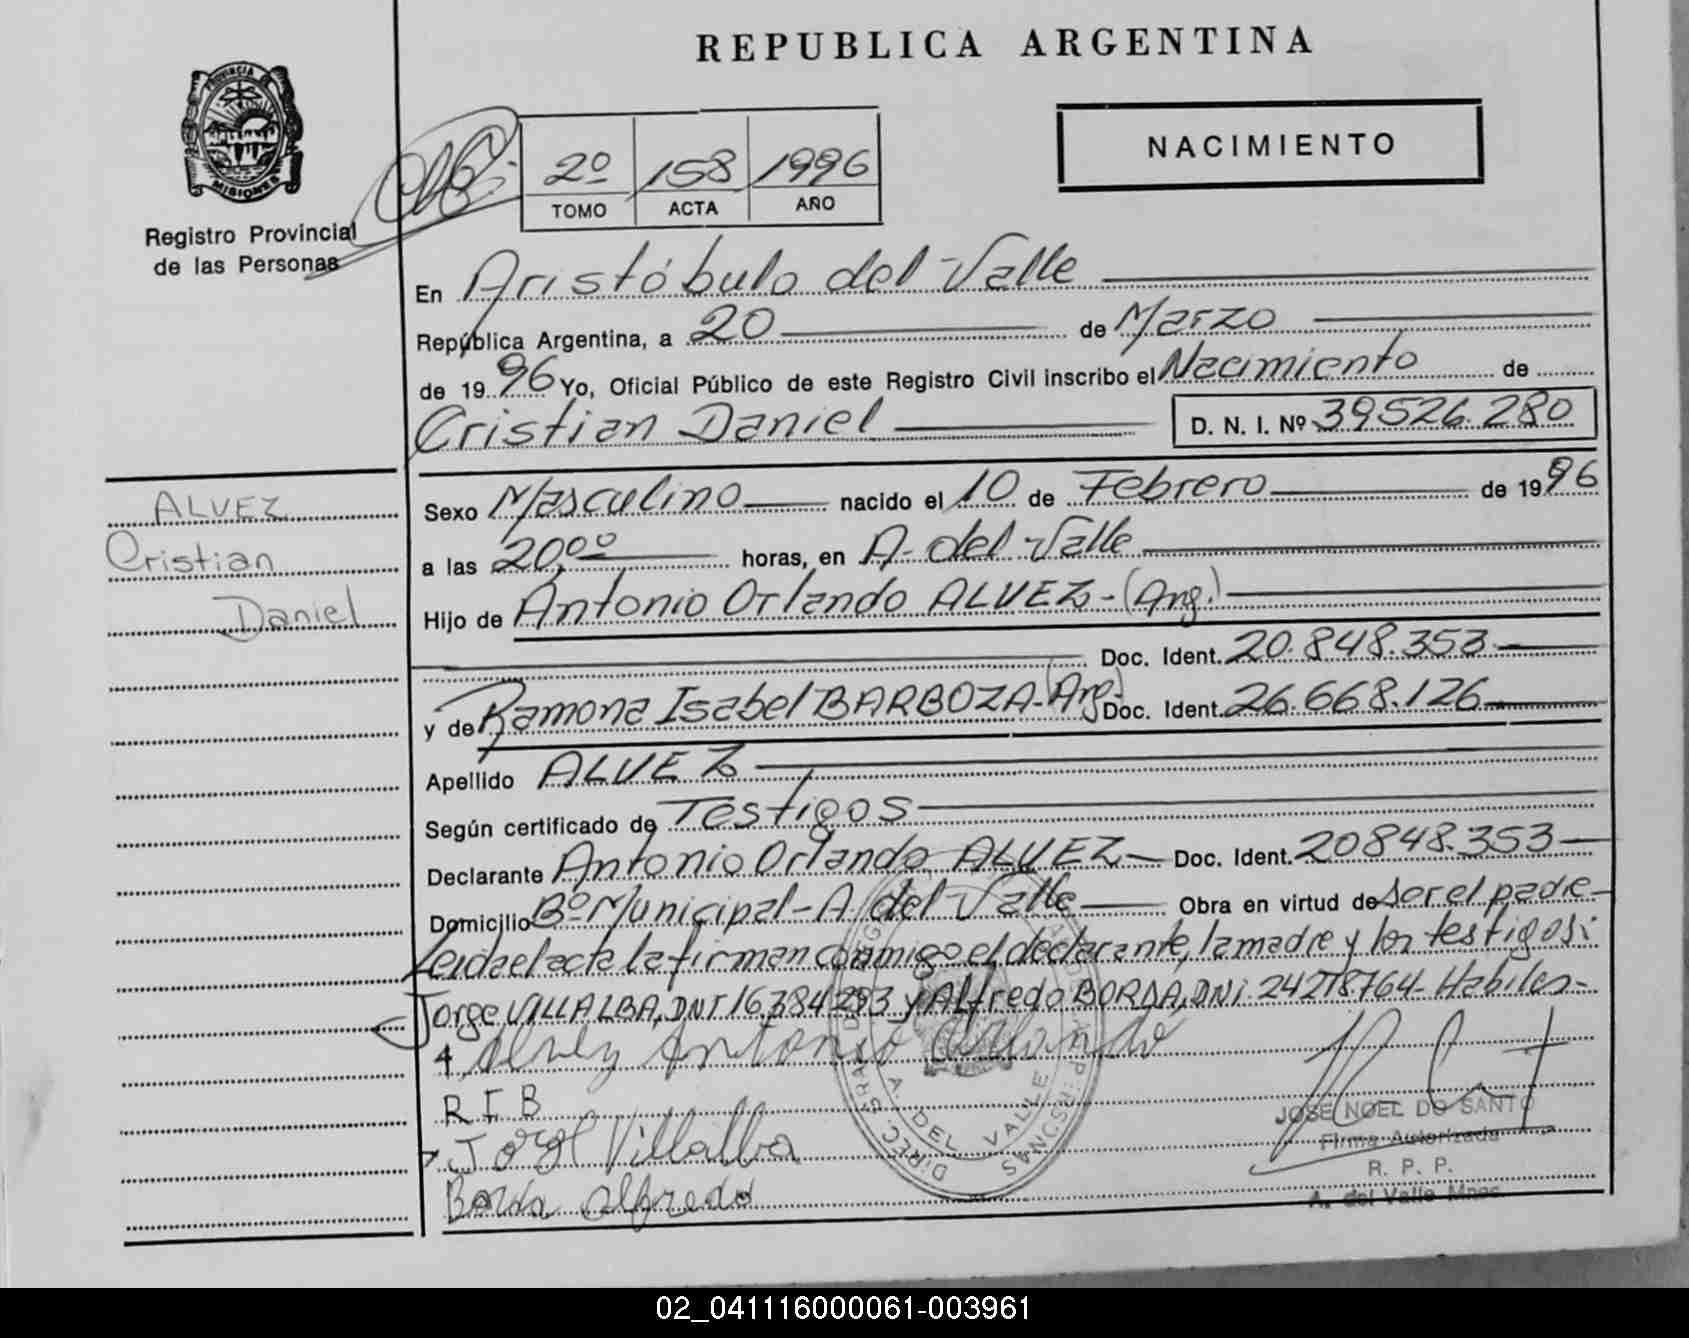 REPUBLICA ARGENTINA
PROVINCIA
MISIONES
Registro Provincial
de las Personas
2º 158 1996
TOMO ACTA AÑO
NACIMIENTO
En Aristóbulo del Valle
República Argentina, a 20 de Marzo
de 1996 Yo, Oficial Público de este Registro Civil inscribo el Nacimiento de
Cristian Daniel D. N. I. Nº 39526.280
ALVEZ
Cristian
Daniel
Sexo Masculino nacido el 10 de Febrero de 1996
a las 20,00 horas, en A. del Valle
Hijo de Antonio Orlando ALVEZ-(Arg.)
Doc. Ident. 20.848.353
y de Ramona Isabel BARBOZA-(Arg.) Doc. Ident. 26.668.126
Apellido ALVEZ
Según certificado de Testigos
Declarante Antonio Orlando ALVEZ Doc. Ident. 20848.353
Domicilio Bº Municipal-A del Valle Obra en virtud de Ser el padre
Leida el acta la firman conmigo el declarante, la madre y los testigos:
Jorge VILLALBA, DNI 16.384.293 y Alfredo BORDA, DNi 24218764- Habiles-
Alvez Antonio Orlando
R I B
Jorge Villalba
Borda Alfredo
A. DEL VALLE
JOSE NOEL DO SANTO
Firma Autorizada
R. P. P.
A. del Valle Mnes.
02_041116000061-003961